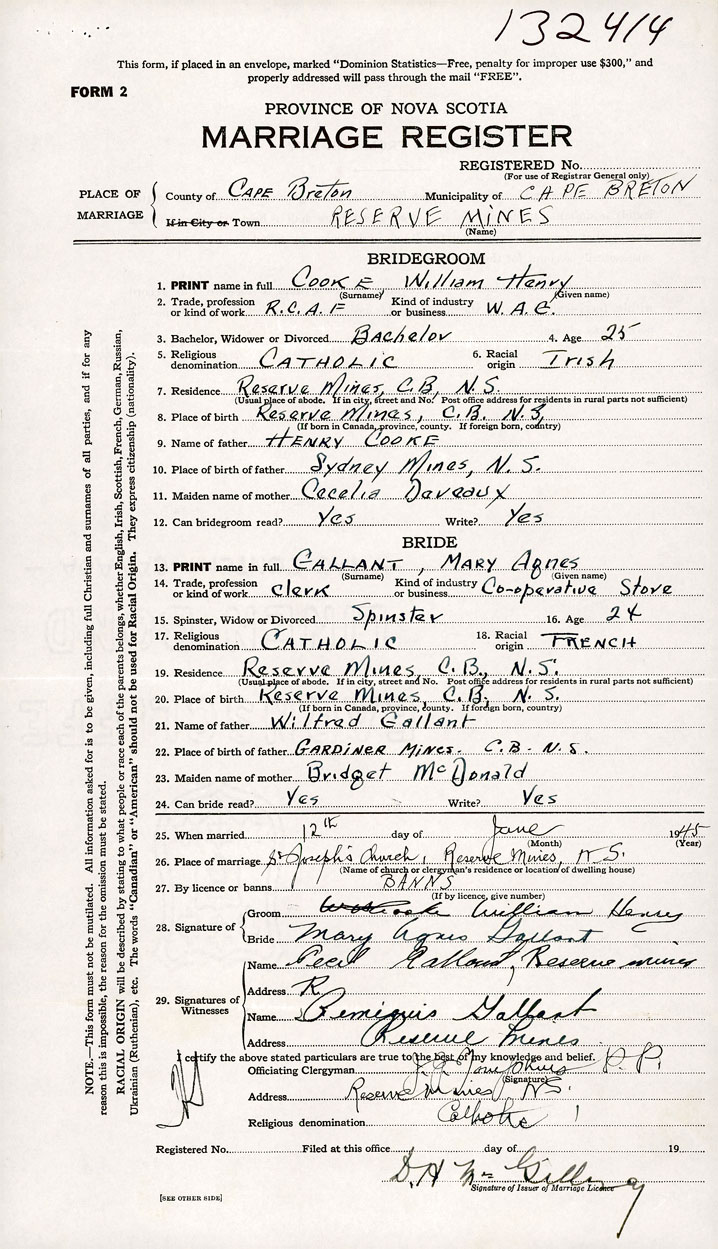 132414
This form, if placed in an envelope, marked "Dominion Statistics—Free, penalty for improper use $300," and
properly addressed will pass through the mail "FREE".
FORM 2
PROVINCE OF NOVA SCOTIA
MARRIAGE REGISTER
REGISTERED No.
(For use of Registrar General only)
PLACE OF MARRIAGE
County of CAPE Breton Municipality of CAPE BRETON
If in City or Town RESERVE MINES
(Name)
BRIDEGROOM
1. PRINT name in full COOKE William Henry
(Surname) (Given name)
2. Trade, profession or kind of work R.C.A.F Kind of industry or business W.A.C.
3. Bachelor, Widower or Divorced Bachelor 4. Age 25
5. Religious denomination CATHOLIC 6. Racial origin Irish
7. Residence Reserve Mines, C.B, N.S.
(Usual place of abode. If in city, street and No. Post office address for residents in rural parts not sufficient)
8. Place of birth Reserve Mines, C.B. N.S,
(If born in Canada, province, county. If foreign born, country)
9. Name of father HENRY COOKE
10. Place of birth of father Sydney Mines, N.S.
11. Maiden name of mother Cecelia Daveaux
12. Can bridegroom read? Yes Write? Yes
BRIDE
13. PRINT name in full GALLANT, MARY Agnes
(Surname) (Given name)
14. Trade, profession or kind of work Clerk Kind of industry or business Co-operative Store
15. Spinster, Widow or Divorced Spinster 16. Age 24
17. Religious denomination CATHOLIC 18. Racial origin FRENCH
19. Residence Reserve Mines, C.B., N.S.
(Usual place of abode. If in city, street and No. Post office address for residents in rural parts not sufficient)
20. Place of birth Reserve Mines, C.B, N.S.
(If born in Canada, province, county. If foreign born, country)
21. Name of father Wilfred Gallant
22. Place of birth of father GARDINER MINES. C.B. N.S.
23. Maiden name of mother Bridget McDonald
24. Can bride read? Yes Write? Yes
25. When married 12th day of June 1945
(Month) (Year)
26. Place of marriage St Joseph's Church, Reserve Mines, N.S.
(Name of church or clergyman's residence or location of dwelling house)
27. By licence or banns BANNS
(If by licence, give number)
28. Signature of
Groom Cooke William Henry
Bride Mary Agnes Gallant
29. Signatures of Witnesses
Name Cecil Gallant, Reserve mines
Address R
Name Remiguis Gallant
Address Reserve Mines
I certify the above stated particulars are true to the best of my knowledge and belief.
Officiating Clergyman P.P.
(Signature)
Address Reserve Mines N.S.
Religious denomination Catholic
Registered No. Filed at this office day of 19
D.H McGillivray
Signature of Issuer of Marriage Licence
[SEE OTHER SIDE]
NOTE.—This form must not be mutilated. All information asked for is to be given, including full Christian and surnames of all parties, and if for any
reason this is impossible, the reason for the omission must be stated.
RACIAL ORIGIN will be described by stating to what people or race each of the parents belongs, whether English, Irish, Scottish, French, German, Russian,
Ukrainian (Ruthenian), etc. The words "Canadian" or "American" should not be used for Racial Origin. They express citizenship (nationality).